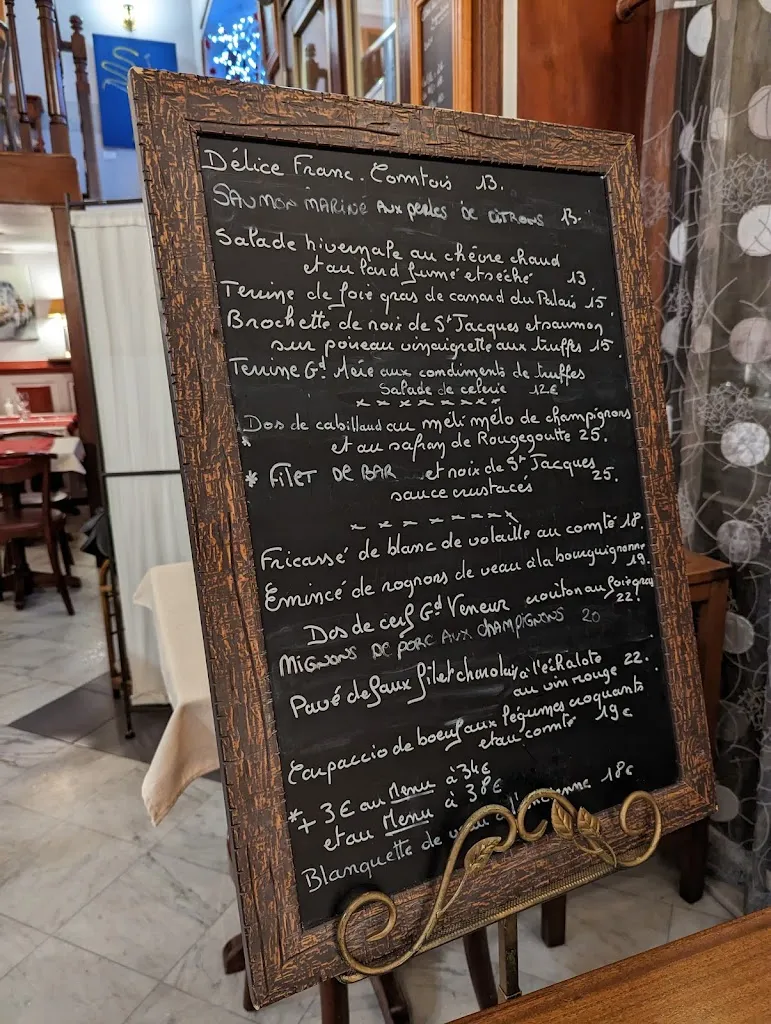 Délice Franc-Comtois 13.
SAUMON MARINÉ AUX PERLES DE CITRONS 13.
Salade hivernale au chêvre chaud
et au lard fumé et séché 13
Terrine de foie gras de canard du Palais 15
Brochette de noix de St Jacques et saumon
sur poireau vinaigrette aux truffes 15.
Terrine Gd Mère aux condiments de truffes
Salade de celerie 12€
x-x-x-x-x-x-x-x
Dos de cabillaud au méli mélo de champignons
* et au safran de Rougegoutte 25.
* FILET DE BAR et noix de St Jacques
sauce crustacés 25.
x-x-x-x-x-x-x-x
Fricassé de blanc de volaille au comté 18.
Emincé de rognons de veau à la bourguignonne
19.
Dos de cerf Gd Veneur croûton au foie gras
22.
MIGNONS DE PORC AUX CHAMPIGNONS 20
Pavé de faux filet charolais à l'échalote
au vin rouge 22.
Carpaccio de boeuf aux légumes croquants
et au comté 19€
*+ 3€ au Menu à 34€
et au Menu à 38€
Blanquette de veau à l'ancienne 18€